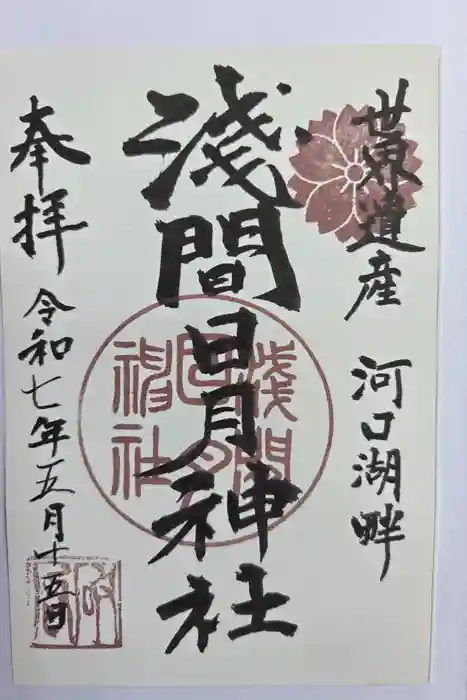 世界遺産 河口湖畔
淺間日月神社
淺間日月神社
奉拝
令和七年五月十五日